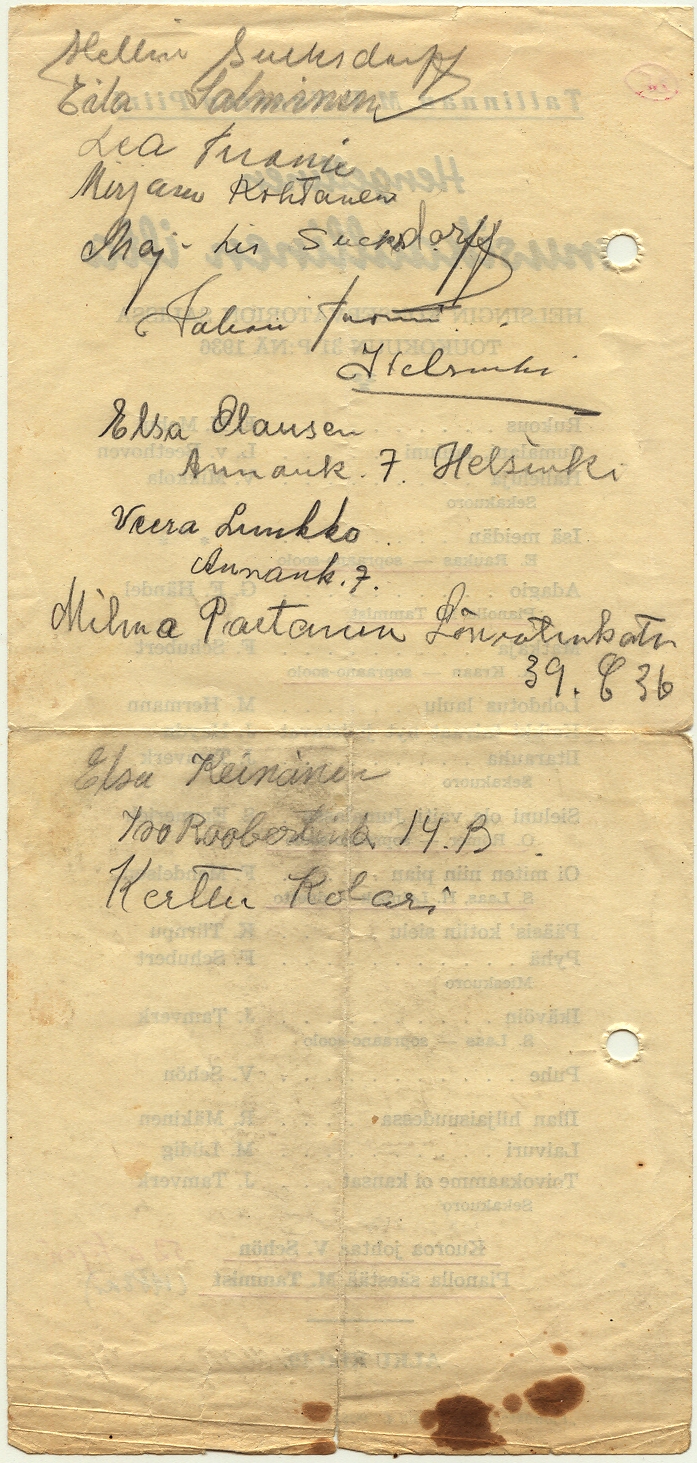 Hellin Sucksdorff
Eila Salminen
Lea Tuomi
Mirjam Kohtanen
Maj-Lis Sucksdorff
Tuomi
Helsinki
Elsa Clausen
Annank. 7. Helsinki
Veera Lunkko
Annank. 7.
Milma Partanen Lönnrotinkatu
39. C 36
Elsa Keinänen
Iso Roobertink. 14. B
Kerttu Kolari
Tallinnan
HELSINGIN
TOUKOKUUN 31 P:NÄ 1936
Rukous
L. v. Beethoven
Sekakuoro
Isä meidän
E. Raukas — sopraano-soolo
Adagio G. F. Händel
F. Schubert
Kraan sopraano-soolo
Lohdutus laulu M. Hermann
Iltarauha
Sekakuoro
Sieluni
Oi miten niin pian
S. Laas
Pääsis' kotiin sielu K. Türnpu
Pyhä F. Schubert
Mieskuoro
Ikävöin J. Tamverk
S. Laas — sopraano-soolo
Puhe V. Schön
Illan hiljaisuudessa R. Mäkinen
Laivuri M. Lüdig
Toivokaamme oi kansat J. Tamverk
Sekakuoro
Kuoroa johtaa V. Schön
Pianolla säestää M. Tammist